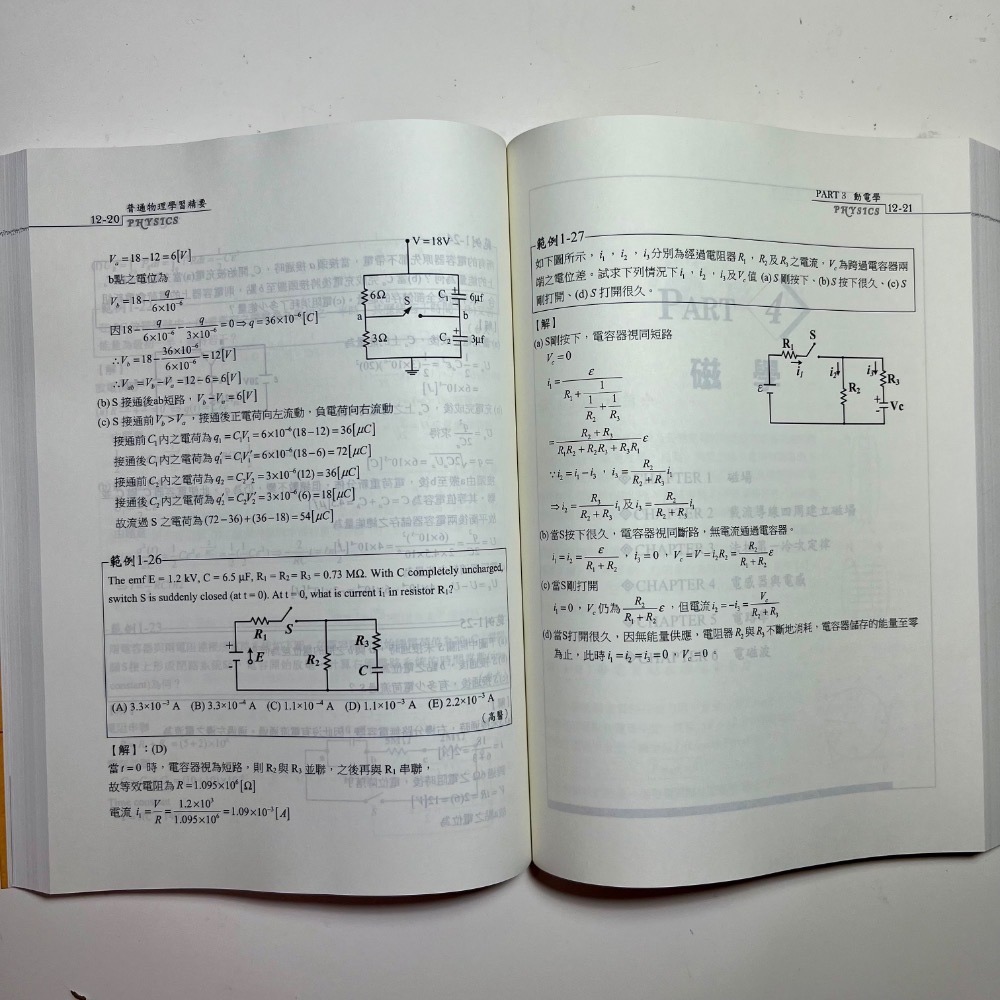 普通物理學習精要
12-20 PHYSICS
V = 18V
6Ω
S
C₁
6μf
a
b
3Ω
C₂
3μf
Vₐ = 18 − 12 = 6[V]
b點之電位為
V_b = 18 − q/(6×10⁻⁶)
因18 − q/(6×10⁻⁶) − q/(3×10⁻⁶) = 0 ⇒ q = 36×10⁻⁶[C]
∴V_b = 18 − (36×10⁻⁶)/(6×10⁻⁶) = 12[V]
∴V_ab = V_b − V_a = 12 − 6 = 6[V]
(b) S 接通後ab短路，V_b − V_a = 6[V]
(c) S 接通前V_b > V_a，接通後正電荷向左流動，負電荷向右流動
接通前C₁內之電荷為q₁ = C₁V₁ = 6×10⁻⁶(18−12) = 36[μC]
接通後C₁內之電荷為q₁′ = C₁V₁′ = 6×10⁻⁶(18−6) = 72[μC]
接通前C₂內之電荷為q₂ = C₂V₂ = 3×10⁻⁶(12) = 36[μC]
接通後C₂內之電荷為q₂′ = C₂V₂′ = 3×10⁻⁶(6) = 18[μC]
故流過 S 之電荷為(72−36)+(36−18) = 54[μC]
範例1-26
The emf E = 1.2 kV, C = 6.5 μF, R₁ = R₂ = R₃ = 0.73 MΩ. With C completely uncharged,
switch S is suddenly closed (at t = 0). At t = 0, what is current i in resistor R₁?
R₁
S
+
-
E
R₂
R₃
C
(A) 3.3×10⁻³ A (B) 3.3×10⁻⁴ A (C) 1.1×10⁻⁴ A (D) 1.1×10⁻³ A (E) 2.2×10⁻³ A
（高醫）
【解】：(D)
當 t = 0 時，電容器視為短路，則 R₂ 與 R₃ 並聯，之後再與 R₁ 串聯，
故等效電阻為 R = 1.095×10⁶[Ω]
電流 i₁ = V/R = (1.2×10³)/(1.095×10⁶) = 1.09×10⁻³[A]
PART 3 動電學
PHYSICS 12-21
範例1-27
如下圖所示，i₁，i₂，i₃分別為經過電阻器R₁，R₂及R₃之電流，V_c為跨過電容器兩
端之電位差。試求下列情況下i₁，i₂，i₃及V_c值 (a) S剛按下、(b) S 按下很久、(c) S
剛打開、(d) S 打開很久。
【解】
(a) S剛按下，電容器視同短路
V_c = 0
i₁ = ε/(R₁ + 1/(1/R₂ + 1/R₃))
= (R₂ + R₃)/(R₁R₂ + R₂R₃ + R₃R₁) ε
∵i₂ = i₁ − i₃，i₃ = R₂/(R₂ + R₃) i₁
⇒ i₂ = R₃/(R₂ + R₃) i₁ 及 i₃ = R₂/(R₂ + R₃) i₁
R₁
S
i₁
i₂
i₃
R₂
R₃
ε
+
-
Vc
(b) 當S按下很久，電容器視同斷路，無電流通過電容器。
i₁ = i₂ = ε/(R₁ + R₂)，i₃ = 0，V_c = V = i₂R₂ = R₂/(R₁ + R₂) ε
(c) 當S剛打開
i₁ = 0，V_c仍為 R₂/(R₁ + R₂) ε，但電流i₂ = −i₃ = V_c/(R₂ + R₃)
(d) 當S打開很久，因無能量供應，電阻器R₂與R₃不斷地消耗，電容器儲存的能量至零
為止，此時i₁ = i₂ = i₃ = 0，V_c = 0。
PART 4
磁學
CHAPTER 1 磁場
CHAPTER 2 載流導線四周建立磁場
CHAPTER 4 電感器與電感
CHAPTER 5
電磁波